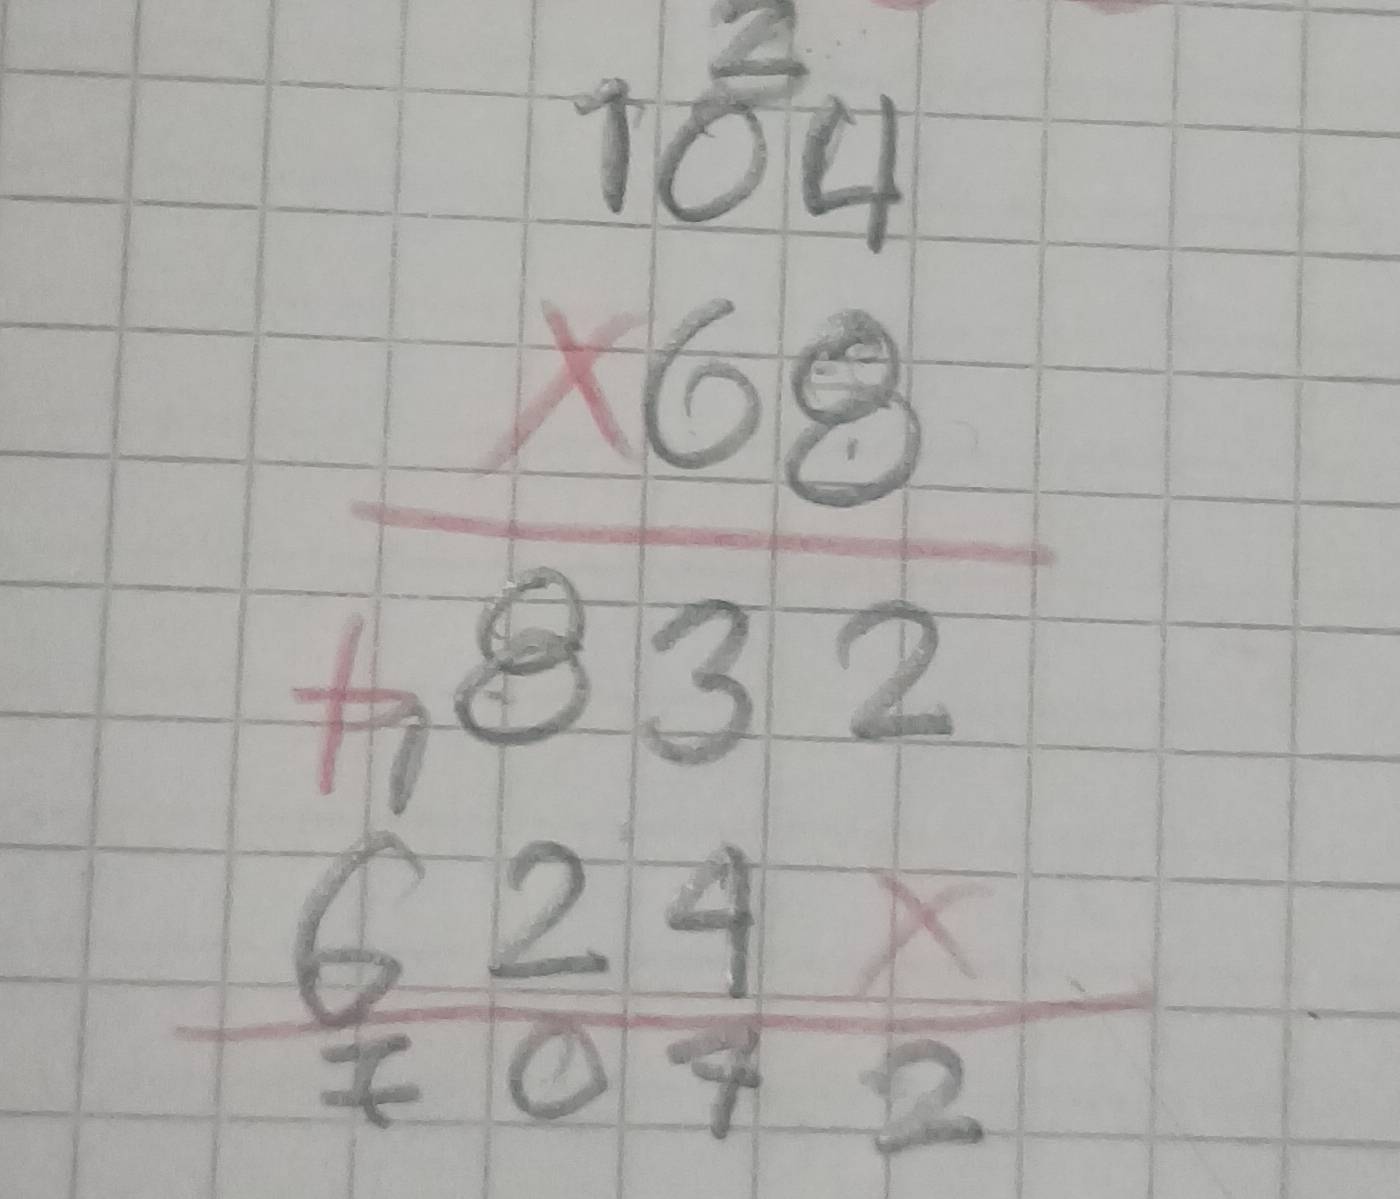 2
104
x68
+1832
624x
7072